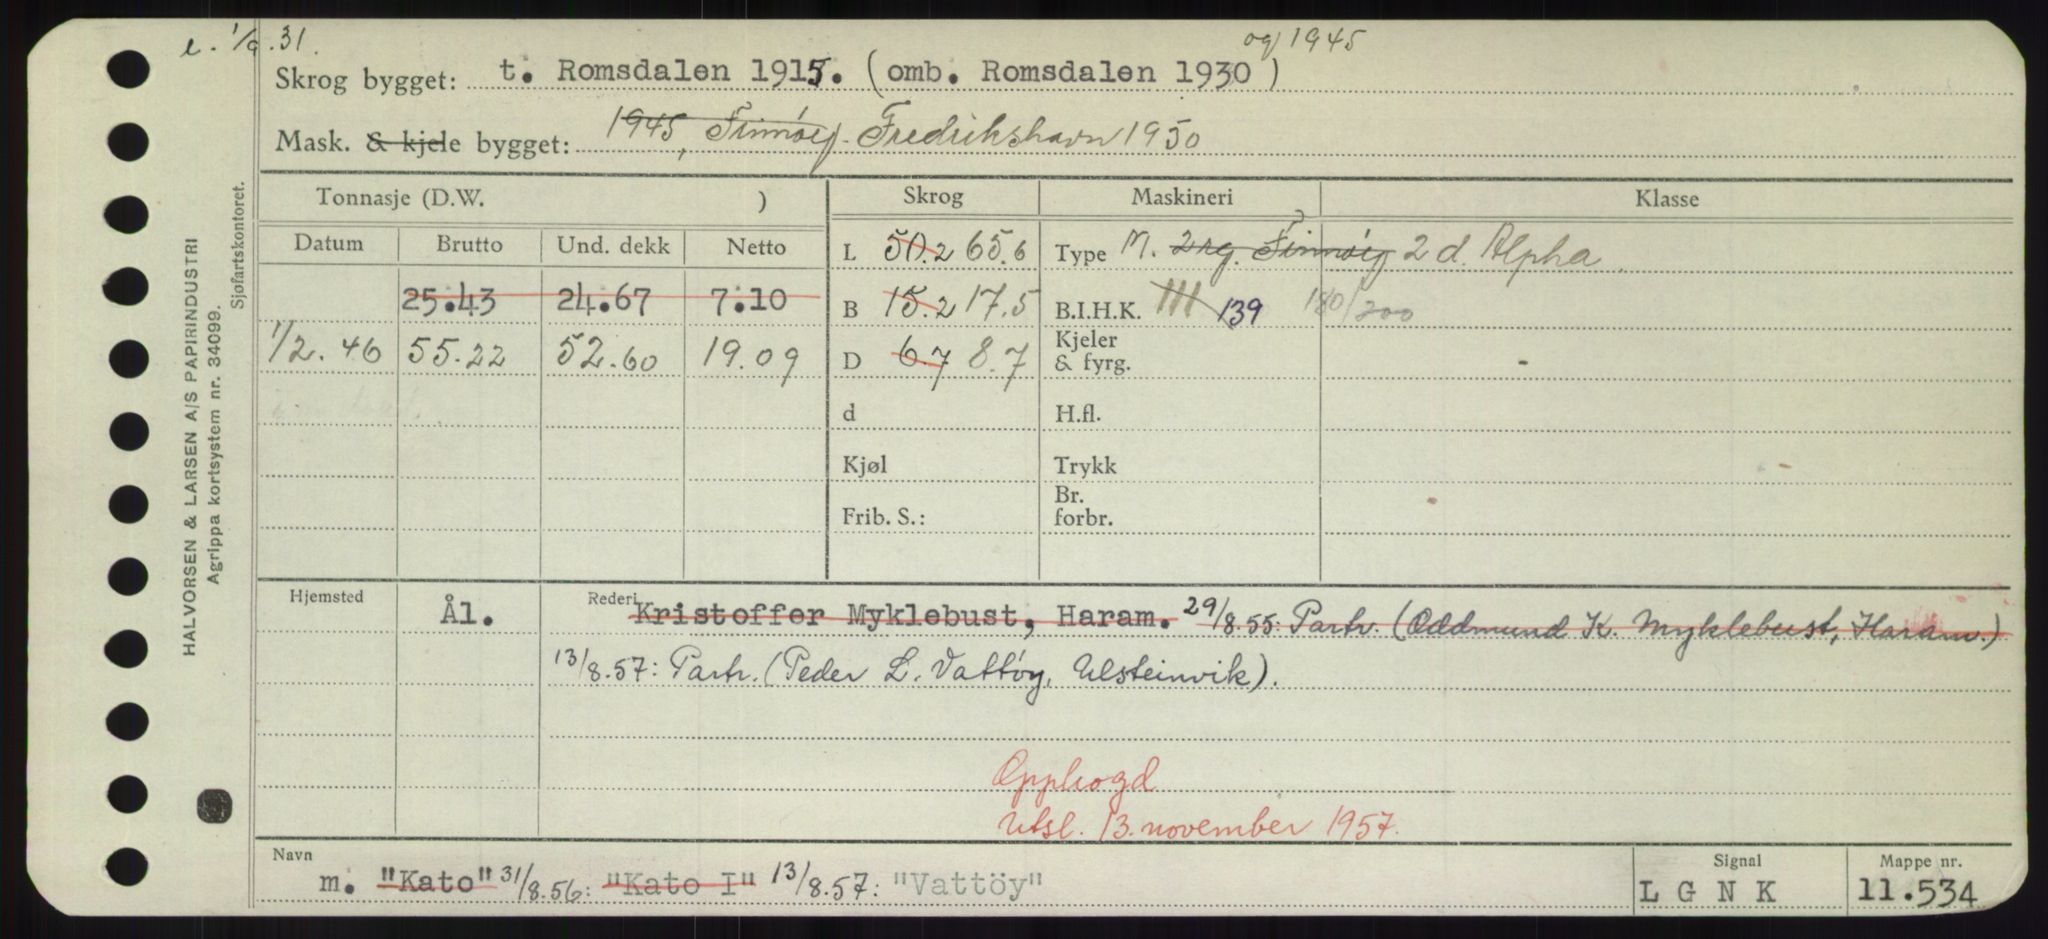 e. 1/9.31.
og 1945
Skrog bygget: t. Romsdalen 1915. (omb. Romsdalen 1930)
Mask. & kjele bygget: 1945, Finnøy. Fredrikshavn 1950
Tonnasje (D.W. ) Skrog Maskineri Klasse
Datum Brutto Und. dekk Netto
L 50.2 65.6 Type M. 2 rg. Finnøy 2 d. Alpha
25.43 24.67 7.10 B 15.2 17.5 B.I.H.K. 111 139 180/200
1/2.46 55.22 52.60 19.09 D 6.7 8.7 Kjeler & fyrg. -
d H.fl.
Kjøl Trykk
Frib. S.: Br. forbr.
Hjemsted Ål. Rederi Kristoffer Myklebust, Haram. 29/8.55: Partr. (Oddmund K. Myklebust, Haram.)
13/8.57: Partr. (Peder L. Vattöy, Ulsteinvik).
Opphogd
Utsl. 13. november 1957.
Navn Signal Mappe nr.
m. "Kato" 31/8.56: "Kato I" 13/8.57: "Vattöy" L G N K 11.534
HALVORSEN & LARSEN A/S PAPIRINDUSTRI
Agrippa kortsystem nr. 34099.
Sjøfartskontoret.